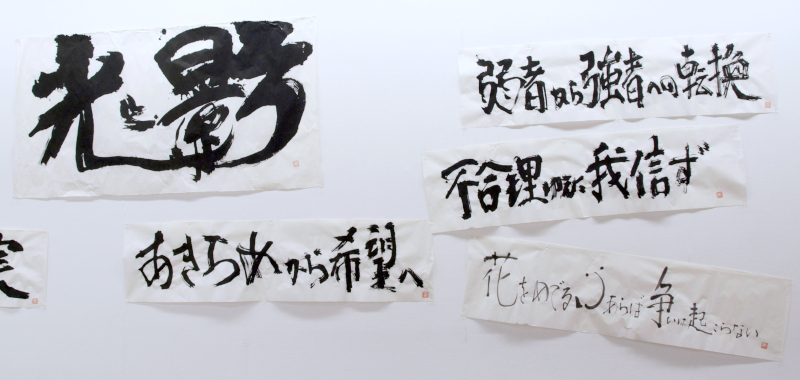 光と影
弱者から強者への転換
不合理ゆえに我信ず
実
あきらめから希望へ
花をめでる心あらば争いは起こらない